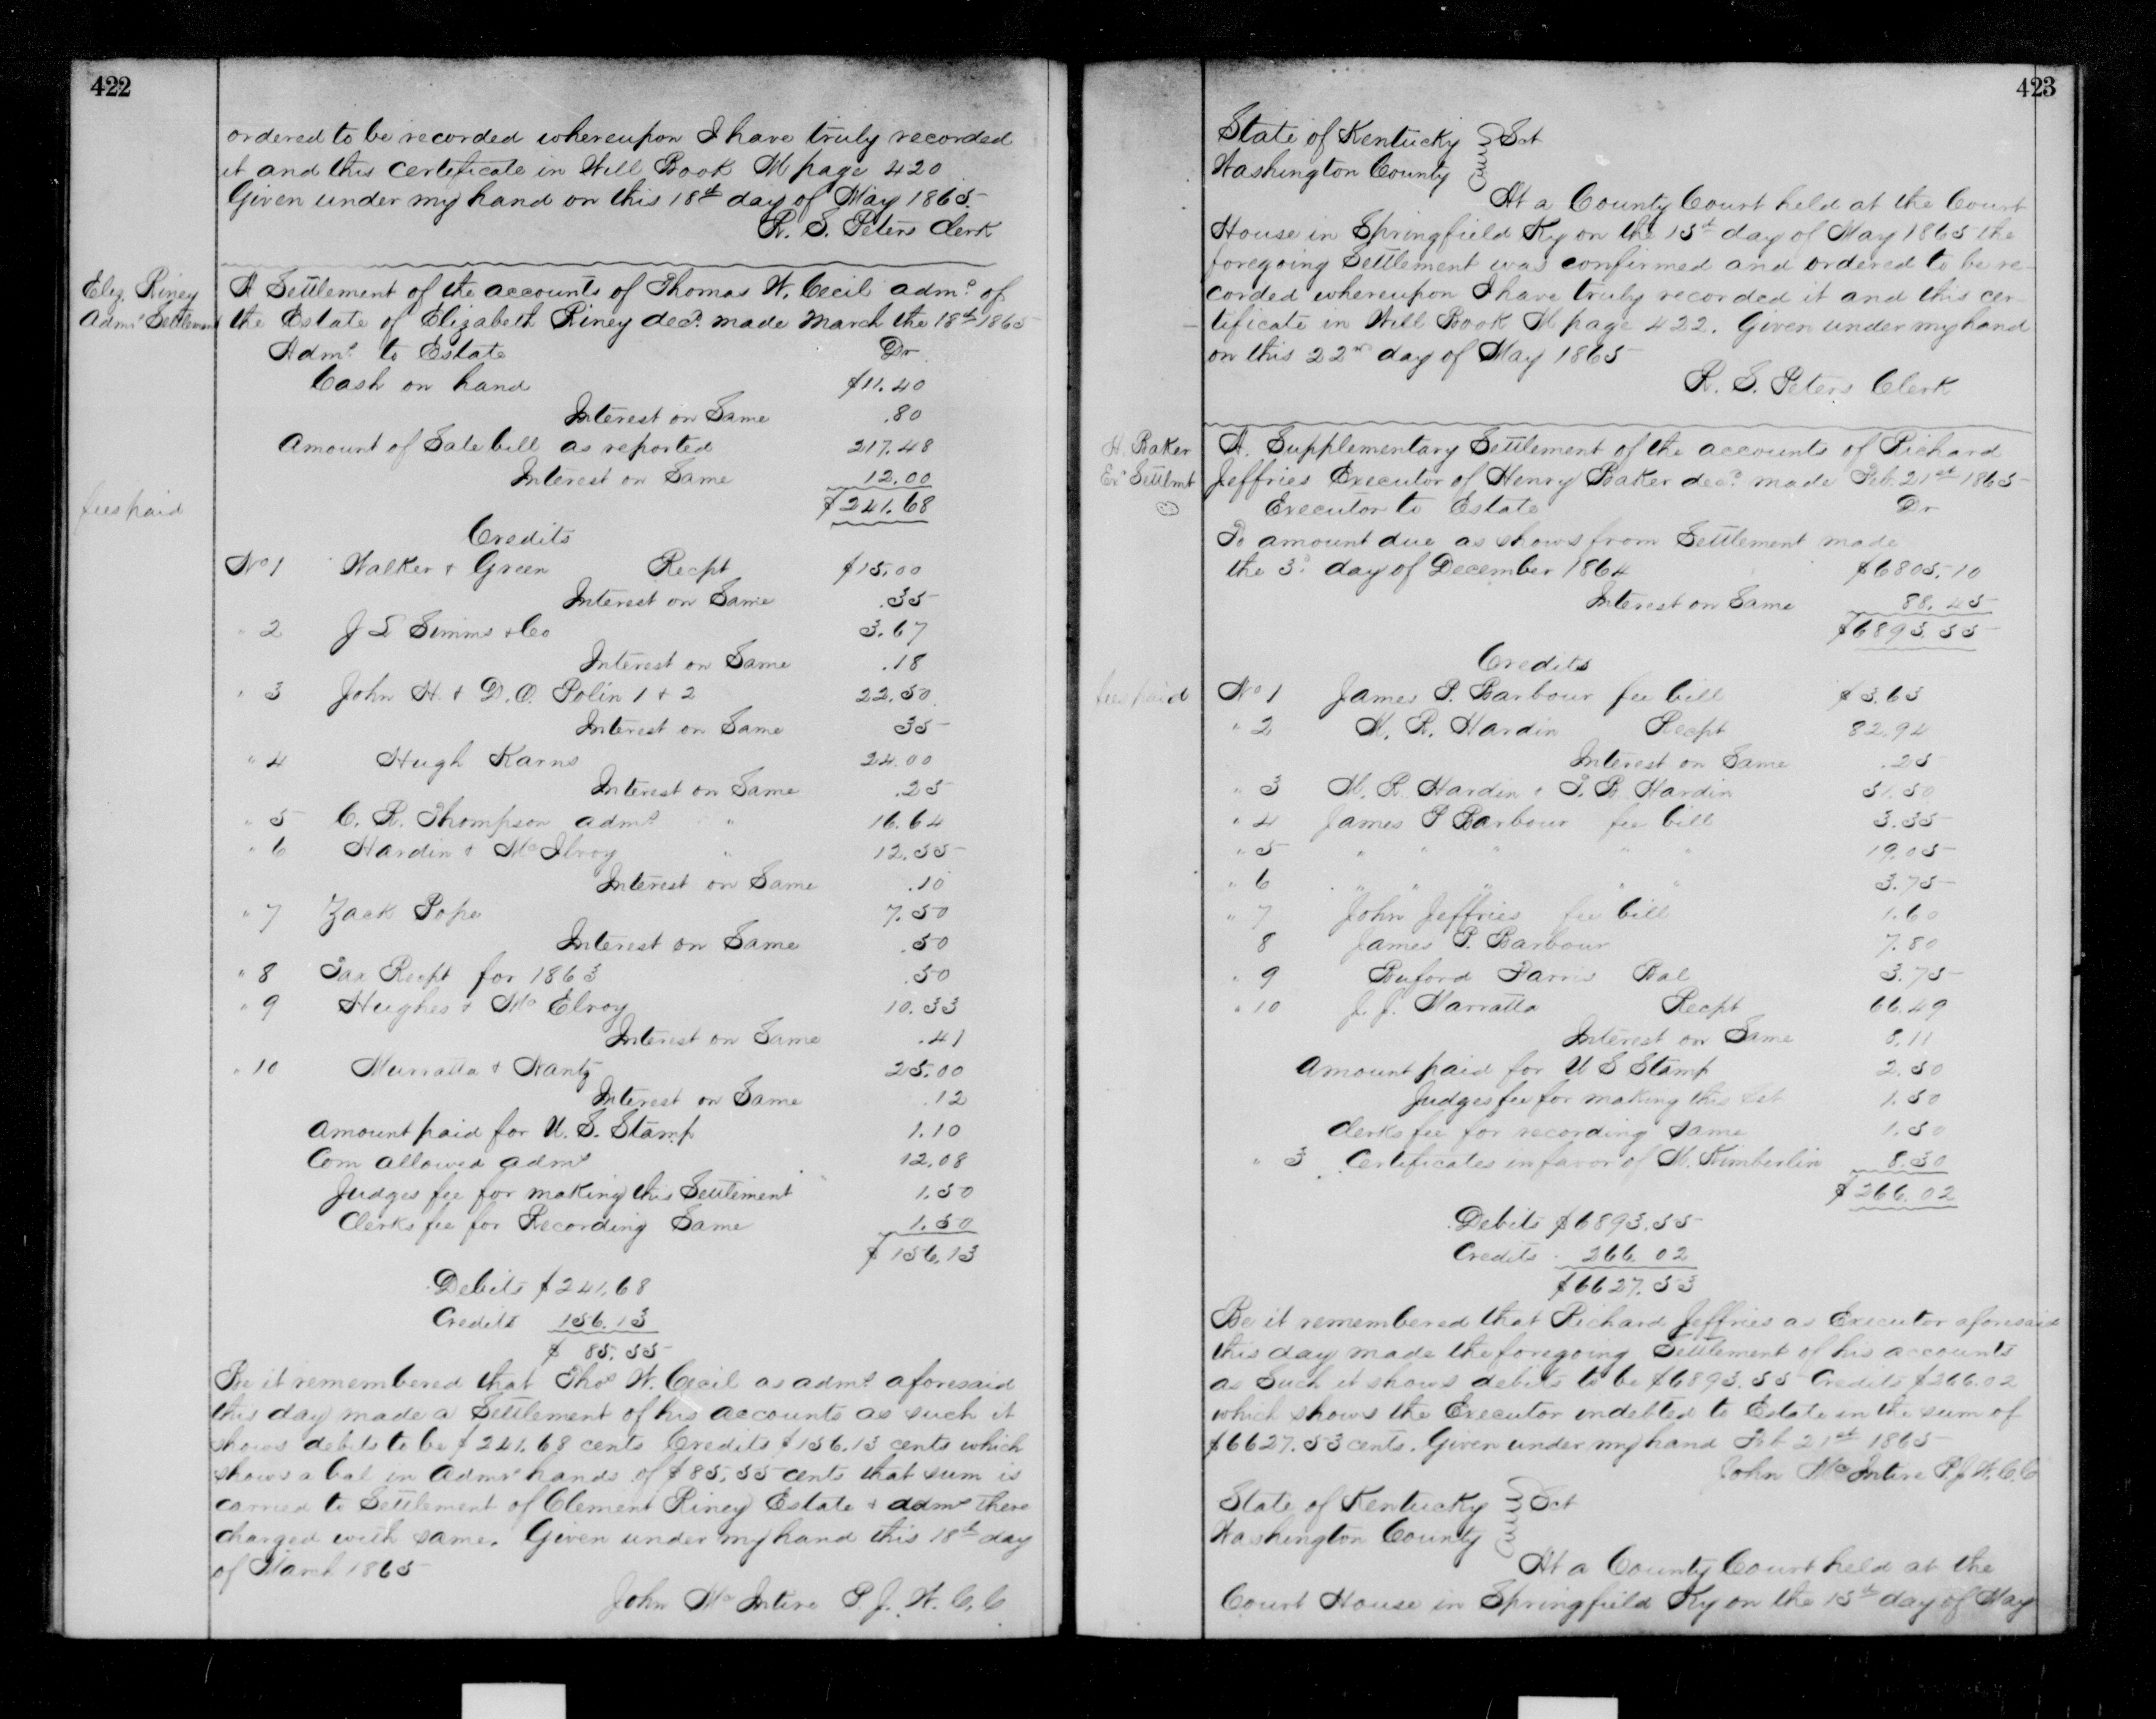 422
ordered to be recorded whereupon I have truly recorded
it and this certificate in Will Book M page 420
Given under my hand on this 18th day of May 1865.
R. S. Peters Clerk
Eliz. Riney
Admr Settlement
A Settlement of the accounts of Thomas W. Cecil admr of
the Estate of Elizabeth Riney decd. made March the 18th 1865
Admr to Estate Dr
Cash on hand $11.40
Interest on Same .80
Amount of Sale bill as reported 217.48
Interest on Same 12.00
fees paid
$241.68
Credits
No 1 Walker & Green Recpt $15.00
Interest on Same .35
" 2 J L Simms & Co 3.67
Interest on Same .18
" 3 John H. & D. O. Polin 1 & 2 22.50
Interest on Same 35
" 4 Hugh Karns 24.00
Interest on Same .25
" 5 C. R. Thompson admr " 16.64
" 6 Hardin & McIlroy " 12.55
Interest on Same .10
" 7 Zack Pope 7.50
Interest on Same .50
" 8 Tax Recpt for 1863 .50
" 9 Hughes & McElroy 10.33
Interest on Same .41
" 10 Marratta & Nantz 25.00
Interest on Same .12
Amount paid for U. S. Stamp 1.10
Com allowed admr 12.08
Judges fee for making this Settlement 1.50
Clerks fee for Recording Same 1.50
$156.13
Debits $241.68
Credits 156.13
$ 85.55
Be it remembered that Thos W. Cecil as admr aforesaid
this day made a Settlement of his accounts as such it
shows debits to be $241.68 cents Credits $156.13 cents which
shows a bal in Admrs hands of $85.55 cents that sum is
carried to Settlement of Clement Riney Estate & admr there
charged with same. Given under my hand this 18th day
of March 1865
John McIntire P. J. W. C. C
423
State of Kentucky Sct
Washington County
At a County Court held at the Court
House in Springfield Ky on the 15th day of May 1865 the
foregoing Settlement was confirmed and ordered to be re-
corded whereupon I have truly recorded it and this cer-
tificate in Will Book M page 422. Given under my hand
on this 22nd day of May 1865
R. S. Peters Clerk
H. Baker
Exr Settlmt
A. Supplementary Settlement of the accounts of Richard
Jeffries Executor of Henry Baker decd. made Feb. 21st 1865
Executor to Estate Dr
To amount due as shows from Settlement made
the 3d. day of December 1864 $6805.10
Interest on Same 88.45
$6893.55
Credits
fees paid
No 1 James P. Barbour fee bill $3.63
" 2 M. R. Hardin Recpt 82.94
Interest on Same .25
" 3 M. R. Hardin & T. B. Hardin 51.50
" 4 James P Barbour fee bill 3.35
" 5 " " " " " 19.05
" 6 " " " " " 3.75
" 7 John Jeffries fee bill 1.60
8 James P. Barbour 7.80
" 9 Buford Farris Bal 3.75
" 10 J. J. Marratta Recpt 66.49
Interest on Same 8.11
Amount paid for U S Stamp 2.50
Judges fee for making this Set 1.50
Clerks fee for recording same 1.50
" 3 Certificates in favor of M. Kimberlin 8.30
$266.02
Debits $6893.55
Credits 266.02
$6627.53
Be it remembered that Richard Jeffries as Executor aforesaid
this day made the foregoing Settlement of his accounts
as Such it shows debits to be $6893.55 Credits $266.02
which shows the Executor indebted to Estate in the sum of
$6627.53 cents. Given under my hand Feb 21st 1865
John McIntire P. J. W. C. C
State of Kentucky Sct
Washington County
At a County Court held at the
Court House in Springfield Ky on the 15th day of May